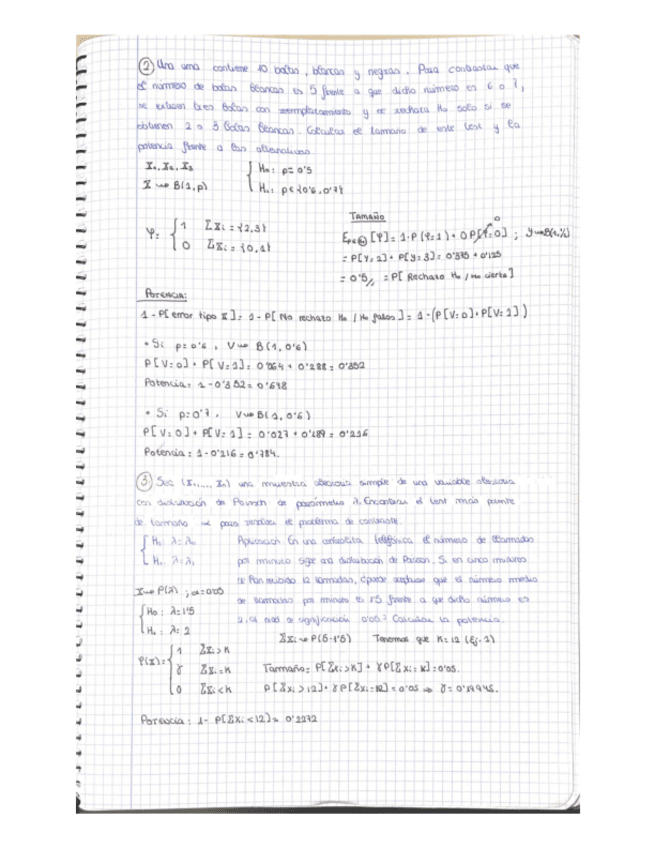 ② Una urna contiene 10 bolas, blancas y negras. Para contrastar que
el número de bolas blancas es 5 frente a que dicho número es 6 o 7,
se extraen tres bolas con reemplazamiento y se rechaza H₀ solo si se
obtienen 2 o 3 bolas blancas. Calcular el tamaño de este test y la
potencia frente a las alternativas
X₁, X₂, X₃
H₀: p=0'5
X ⇝ B(1,p)
H₁: p∈{0'6, 0'7}
TAMAÑO
φ= { 1 ΣXi = {2,3}
0 ΣXi = {0,1}
[φ] = 1·P(φ=1) + 0·P[φ=0] ;
0
= 0'375 + 0'125
= 0'5 // = P[Rechazo H₀ / H₀ cierta]
POTENCIA:
1 - P[error tipo II] = 1 - P[No rechazo H₀ / H₀ falsa] = 1 - (P[V=0]+P[V=1])
• Si p=0'6, V ⇝ B(1,0'6)
P[V=0] + P[V=1] = 0'064 + 0'288 = 0'352
Potencia = 1 - 0'352 = 0'648
• Si p=0'7, V ⇝ B(1,0'6)
P[V=0] + P[V=1] = 0'027 + 0'189 = 0'216
Potencia = 1 - 0'216 = 0'784.
③ Sea (X₁,..., Xn) una muestra aleatoria simple de una variable aleatoria
con distribución de Poisson de parámetro λ. Encontrar el test más potente
de tamaño α para resolver el problema de contraste.
H₀ λ=λ₀
Aplicación En una centralita telefónica el número de llamadas
H₁ λ=λ₁
por minuto sigue una distribución de Poisson. Si en cinco minutos
se han recibido 12 llamadas, ¿puede aceptarse que el número medio
X ⇝ P(λ) ; α=0'05
de llamadas por minuto es 1'5 frente a que dicho número es
H₀: λ=1'5
2, al nivel de significación 0'05? Calcular la potencia.
H₁: λ=2
ΣXi ⇝ P(5·1'5) Tenemos que K=12
φ(X)= { 1 ΣXi > K
γ ΣXi = K
Tamaño: P[ΣXi > K] + γP[ΣXi = K] = 0'05.
0 ΣXi < K
P[ΣXi > 12] + γP[ΣXi = 12] = 0'05 ⇒
Potencia: 1 - P[ΣXi < 12] = 0'2272